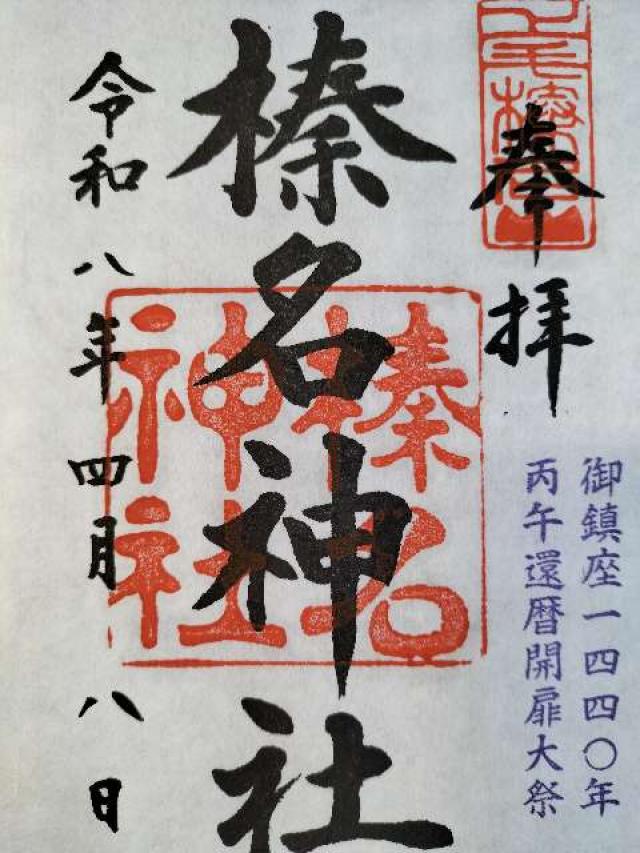 奉拝
御鎮座一四四〇年
丙午還暦開扉大祭
榛名神社
榛名
神社
令和八年四月八日